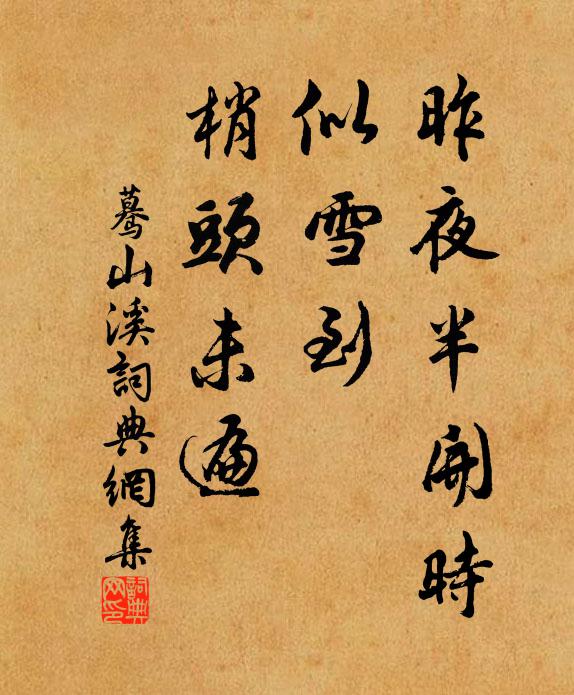 昨夜半開時
似雪到
梢頭未遍
驀山溪詞典網集
詞典網印